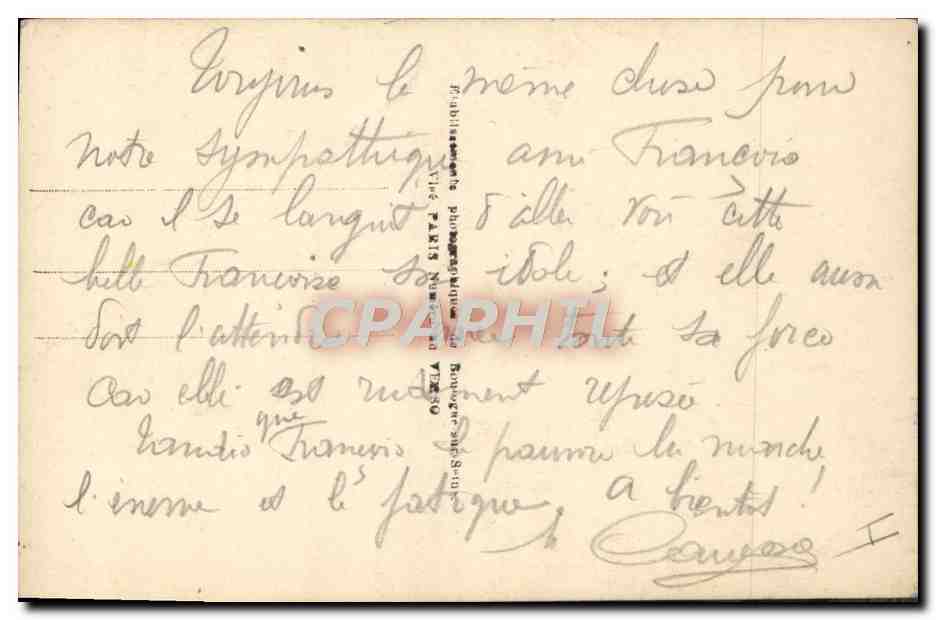 Toujours la même chose pour
notre sympathique ami François
car il se languit d'aller voir cette
belle Françoise son idole; et elle aussi
doit l'attendre avec toute sa force
car elle est rudement reposée
Tandis que François le pauvre la marche
l'énerve et le fatigue. A bientôt!
I
Etablissements photographiques de Boulogne-sur-Seine
Visé PARIS Numéro au VERSO
CPAPHIL